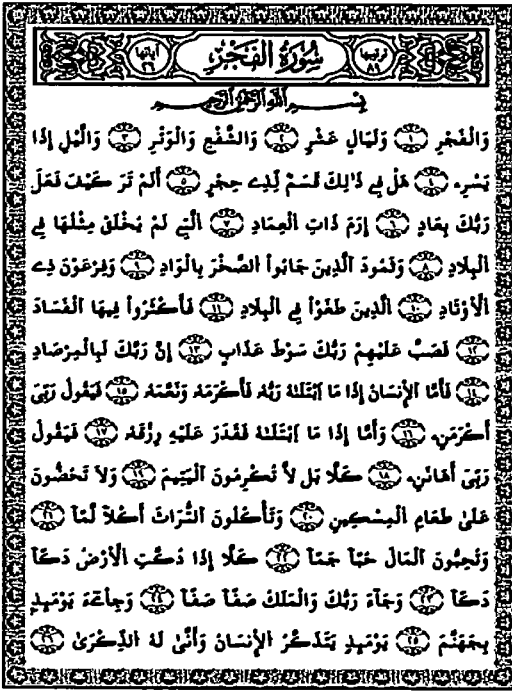 ترتيبها سُورَةُ الْفَجْرِ آياتها
بِسْمِ اللَّهِ الرَّحْمَٰنِ الرَّحِيمِ
وَالْفَجْرِ ١ وَلَيَالٍ عَشْرٍ ٢ وَالشَّفْعِ وَالْوَتْرِ ٣ وَالَيْلِ إِذَا
يَسْرِۦ ٤ هَلْ فِي ذَٰلِكَ قَسَمٌ لِّذِے حِجْرٍ ٥ أَلَمْ تَرَ كَيْفَ فَعَلَ
رَبُّكَ بِعَادٍ ٦ إِرَمَ ذَاتِ الْعِمَادِ ٧ الَّتِي لَمْ يُخْلَقْ مِثْلُهَا فِي
الْبِلَادِ ٨ وَثَمُودَ الَّذِينَ جَابُواْ الصَّخْرَ بِالْوَادِۦ ٩ وَفِرْعَوْنَ ذِے
الْأَوْتَادِ ١٠ الَّذِينَ طَغَوْاْ فِي الْبِلَادِ ١١ فَأَكْثَرُواْ فِيهَا الْفَسَادَ
١٢ فَصَبَّ عَلَيْهِمْ رَبُّكَ سَوْطَ عَذَابٍ ١٣ إِنَّ رَبَّكَ لَبِالْمِرْصَادِ
١٤ فَأَمَّا الْإِنسَانُ إِذَا مَا ابْتَلَىٰهُ رَبُّهُ فَأَكْرَمَهُ وَنَعَّمَهُ ١٥ فَيَقُولُ رَبِّيَ
أَكْرَمَنِۦ ١٦ وَأَمَّا إِذَا مَا ابْتَلَىٰهُ فَقَدَرَ عَلَيْهِ رِزْقَهُ ١٧ فَيَقُولُ
رَبِّيَ أَهَانَنِۦ ١٨ كَلَّا بَل لَّا تُكْرِمُونَ الْيَتِيمَ ١٩ وَلَا تَحُضُّونَ
عَلَىٰ طَعَامِ الْمِسْكِينِ ٢٠ وَتَأْكُلُونَ التُّرَاثَ أَكْلًا لَّمًّا ٢١
وَتُحِبُّونَ الْمَالَ حُبًّا جَمًّا ٢٢ كَلَّا إِذَا دُكَّتِ الْأَرْضُ دَكًّا
دَكًّا ٢٣ وَجَاءَ رَبُّكَ وَالْمَلَكُ صَفًّا صَفًّا ٢٤ وَجِاْيٓءَ يَوْمَئِذٍ
بِجَهَنَّمَ ٢٥ يَوْمَئِذٍ يَتَذَكَّرُ الْإِنسَانُ وَأَنَّىٰ لَهُ الذِّكْرَىٰ ٢٦